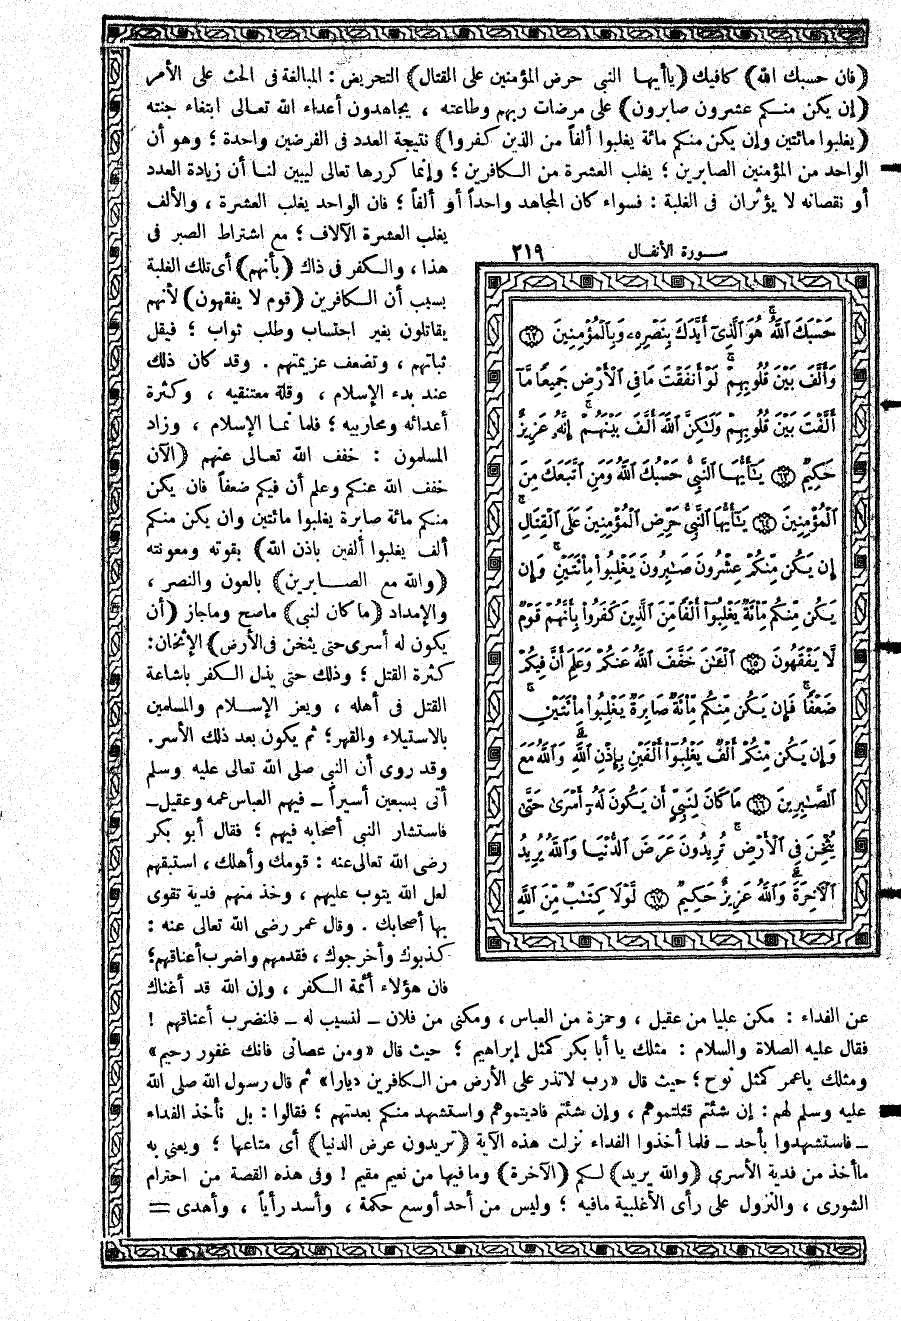 (فان حسبك الله) كافيك (ياأيهـا النبي حرض المؤمنين على القتال) التحريض: المبالغة فى الحث على الأمر
(إن يكن منـكم عشرون صابرون) على مرضات ربهم وطاعته ، يجاهدون أعداء الله تعـالى ابتغاء جنته
(يغلبوا مائتين وإن يكن منكم مائة يغلبوا ألفاً من الذين كفروا) نتيجة العدد فى الفرضين واحدة ؛ وهو أن
الواحد من المؤمنين الصابرين ؛ يغلب العشرة من الـكافرين ؛ وإنما كررها تعالى ليبين لنـا أن زيادة العدد
أو نقصانه لا يؤثران فى الغلبة : فسواء كان المجاهد واحداً أو ألفاً ؛ فان الواحد يغلب العشرة ، والألف
يغلب العشرة الآلاف ؛ مع اشتراط الصبر فى
هذا ، والـكفر فى ذاك (بأنهم) أى تلك الغلبة
بسبب أن الـكافرين (قوم لا يفقهون) لأنهم
يقاتلون بغير احتساب وطلب ثواب ؛ فيقل
ثباتهم ، وتضعف عزيمتهم . وقد كان ذلك
عند بدء الإسلام ، وقلة معتنقيه ، وكثرة
أعدائه ومحاربيه ؛ فلما نمـا الإسلام ، وزاد
المسلمون : خفف الله تعـالى عنهم (الآن
خفف الله عنـكم وعلم أن فيكم ضعفاً فان يكن
منكم مائة صابرة يغلبوا مائتين وان يكن منكم
ألف يغلبوا ألفين باذن الله) بقوته ومعونته
(والله مع الصـابرين) بالعون والنصر ،
والإمداد (ما كان لنبي) ماصح وماجاز (أن
يكون له أسرى حتى يثخن فى الأرض) الإثخان:
كثرة القتل ؛ وذلك حتى يذل الكفر باشاعة
القتل فى أهله ، ويعز الإسـلام والمسلمين
بالاستيلاء والقهر؛ ثم يكون بعد ذلك الأسر.
وقد روى أن النبي صلى الله تعالى عليه وسلم
أتى بسبعين أسيراً ـ فيهم العباس عمه وعقيل ـ
فاستشار النبي أصحابه فيهم ؛ فقال أبو بكر
رضى الله تعالى عنه : قومك وأهلك ، استبقهم
لعل الله يتوب عليهم ، وخذ منهم فدية تقوى
بها أصحابك . وقال عمر رضى الله تعالى عنه :
كذبوك وأخرجوك ، فقدمهم واضرب أعناقهم؛
فان هؤلاء أئمة الـكفر ، وإن الله قد أغناك
سـورة الأنفـال ٢١٩
حَسْبَكَ ٱللَّهُۚ هُوَ ٱلَّذِىٓ أَيَّدَكَ بِنَصْرِهِۦ وَبِٱلْمُؤْمِنِينَ ﴿٦٢﴾
وَأَلَّفَ بَيْنَ قُلُوبِهِمْۚ لَوْ أَنفَقْتَ مَا فِى ٱلْأَرْضِ جَمِيعًا مَّآ
أَلَّفْتَ بَيْنَ قُلُوبِهِمْ وَلَٰكِنَّ ٱللَّهَ أَلَّفَ بَيْنَهُمْۚ إِنَّهُۥ عَزِيزٌ
حَكِيمٌ ﴿٦٣﴾ يَٰٓأَيُّهَا ٱلنَّبِىُّ حَسْبُكَ ٱللَّهُ وَمَنِ ٱتَّبَعَكَ مِنَ
ٱلْمُؤْمِنِينَ ﴿٦٤﴾ يَٰٓأَيُّهَا ٱلنَّبِىُّ حَرِّضِ ٱلْمُؤْمِنِينَ عَلَى ٱلْقِتَالِۚ
إِن يَكُن مِّنكُمْ عِشْرُونَ صَٰبِرُونَ يَغْلِبُوا۟ مِا۟ئَتَيْنِۚ وَإِن
يَكُن مِّنكُم مِّا۟ئَةٌ يَغْلِبُوٓا۟ أَلْفًا مِّنَ ٱلَّذِينَ كَفَرُوا۟ بِأَنَّهُمْ قَوْمٌ
لَّا يَفْقَهُونَ ﴿٦٥﴾ ٱلْـَٰٔنَ خَفَّفَ ٱللَّهُ عَنكُمْ وَعَلِمَ أَنَّ فِيكُمْ
ضَعْفًاۚ فَإِن يَكُن مِّنكُم مِّا۟ئَةٌ صَابِرَةٌ يَغْلِبُوا۟ مِا۟ئَتَيْنِۚ
وَإِن يَكُن مِّنكُمْ أَلْفٌ يَغْلِبُوٓا۟ أَلْفَيْنِ بِإِذْنِ ٱللَّهِۗ وَٱللَّهُ مَعَ
ٱلصَّٰبِرِينَ ﴿٦٦﴾ مَا كَانَ لِنَبِىٍّ أَن يَكُونَ لَهُۥٓ أَسْرَىٰ حَتَّىٰ
يُثْخِنَ فِى ٱلْأَرْضِۚ تُرِيدُونَ عَرَضَ ٱلدُّنْيَا وَٱللَّهُ يُرِيدُ
ٱلْـَٔاخِرَةَۗ وَٱللَّهُ عَزِيزٌ حَكِيمٌ ﴿٦٧﴾ لَّوْلَا كِتَٰبٌ مِّنَ ٱللَّهِ
عن الفداء : مكن عليا من عقيل ، وحمزة من العباس ، ومكنى من فلان ـ لنسيب له ـ فلنضرب أعناقهم !
فقال عليه الصلاة والسلام : مثلك يا أبا بكر كمثل إبراهيم ؛ حيث قال «ومن عصانى فانك غفور رحيم»
ومثلك ياعمر كمثل نوح ؛ حيث قال «رب لا تذر على الأرض من الـكافرين ديارا» ثم قال رسول الله صلى الله
عليه وسلم لهم : إن شئتم قتلتموهم ، وإن شئتم فاديتموهم واستشهد منكم بعدتهم ؛ فقالوا : بل نأخذ الفداء
ـ فاستشهدوا بأحد ـ فلما أخذوا الفداء نزلت هذه الآية (تريدون عرض الدنيا) أى متاعها ؛ ويعنى به
ماأخذ من فدية الأسرى (والله يريد) لـكم (الآخرة) وما فيها من نعيم مقيم ! وفى هذه القصة من احترام
الشورى ، والنزول على رأى الأغلبية مافيه ؛ وليس من أحد أوسع حكمة ، وأسد رأياً ، وأهدى =